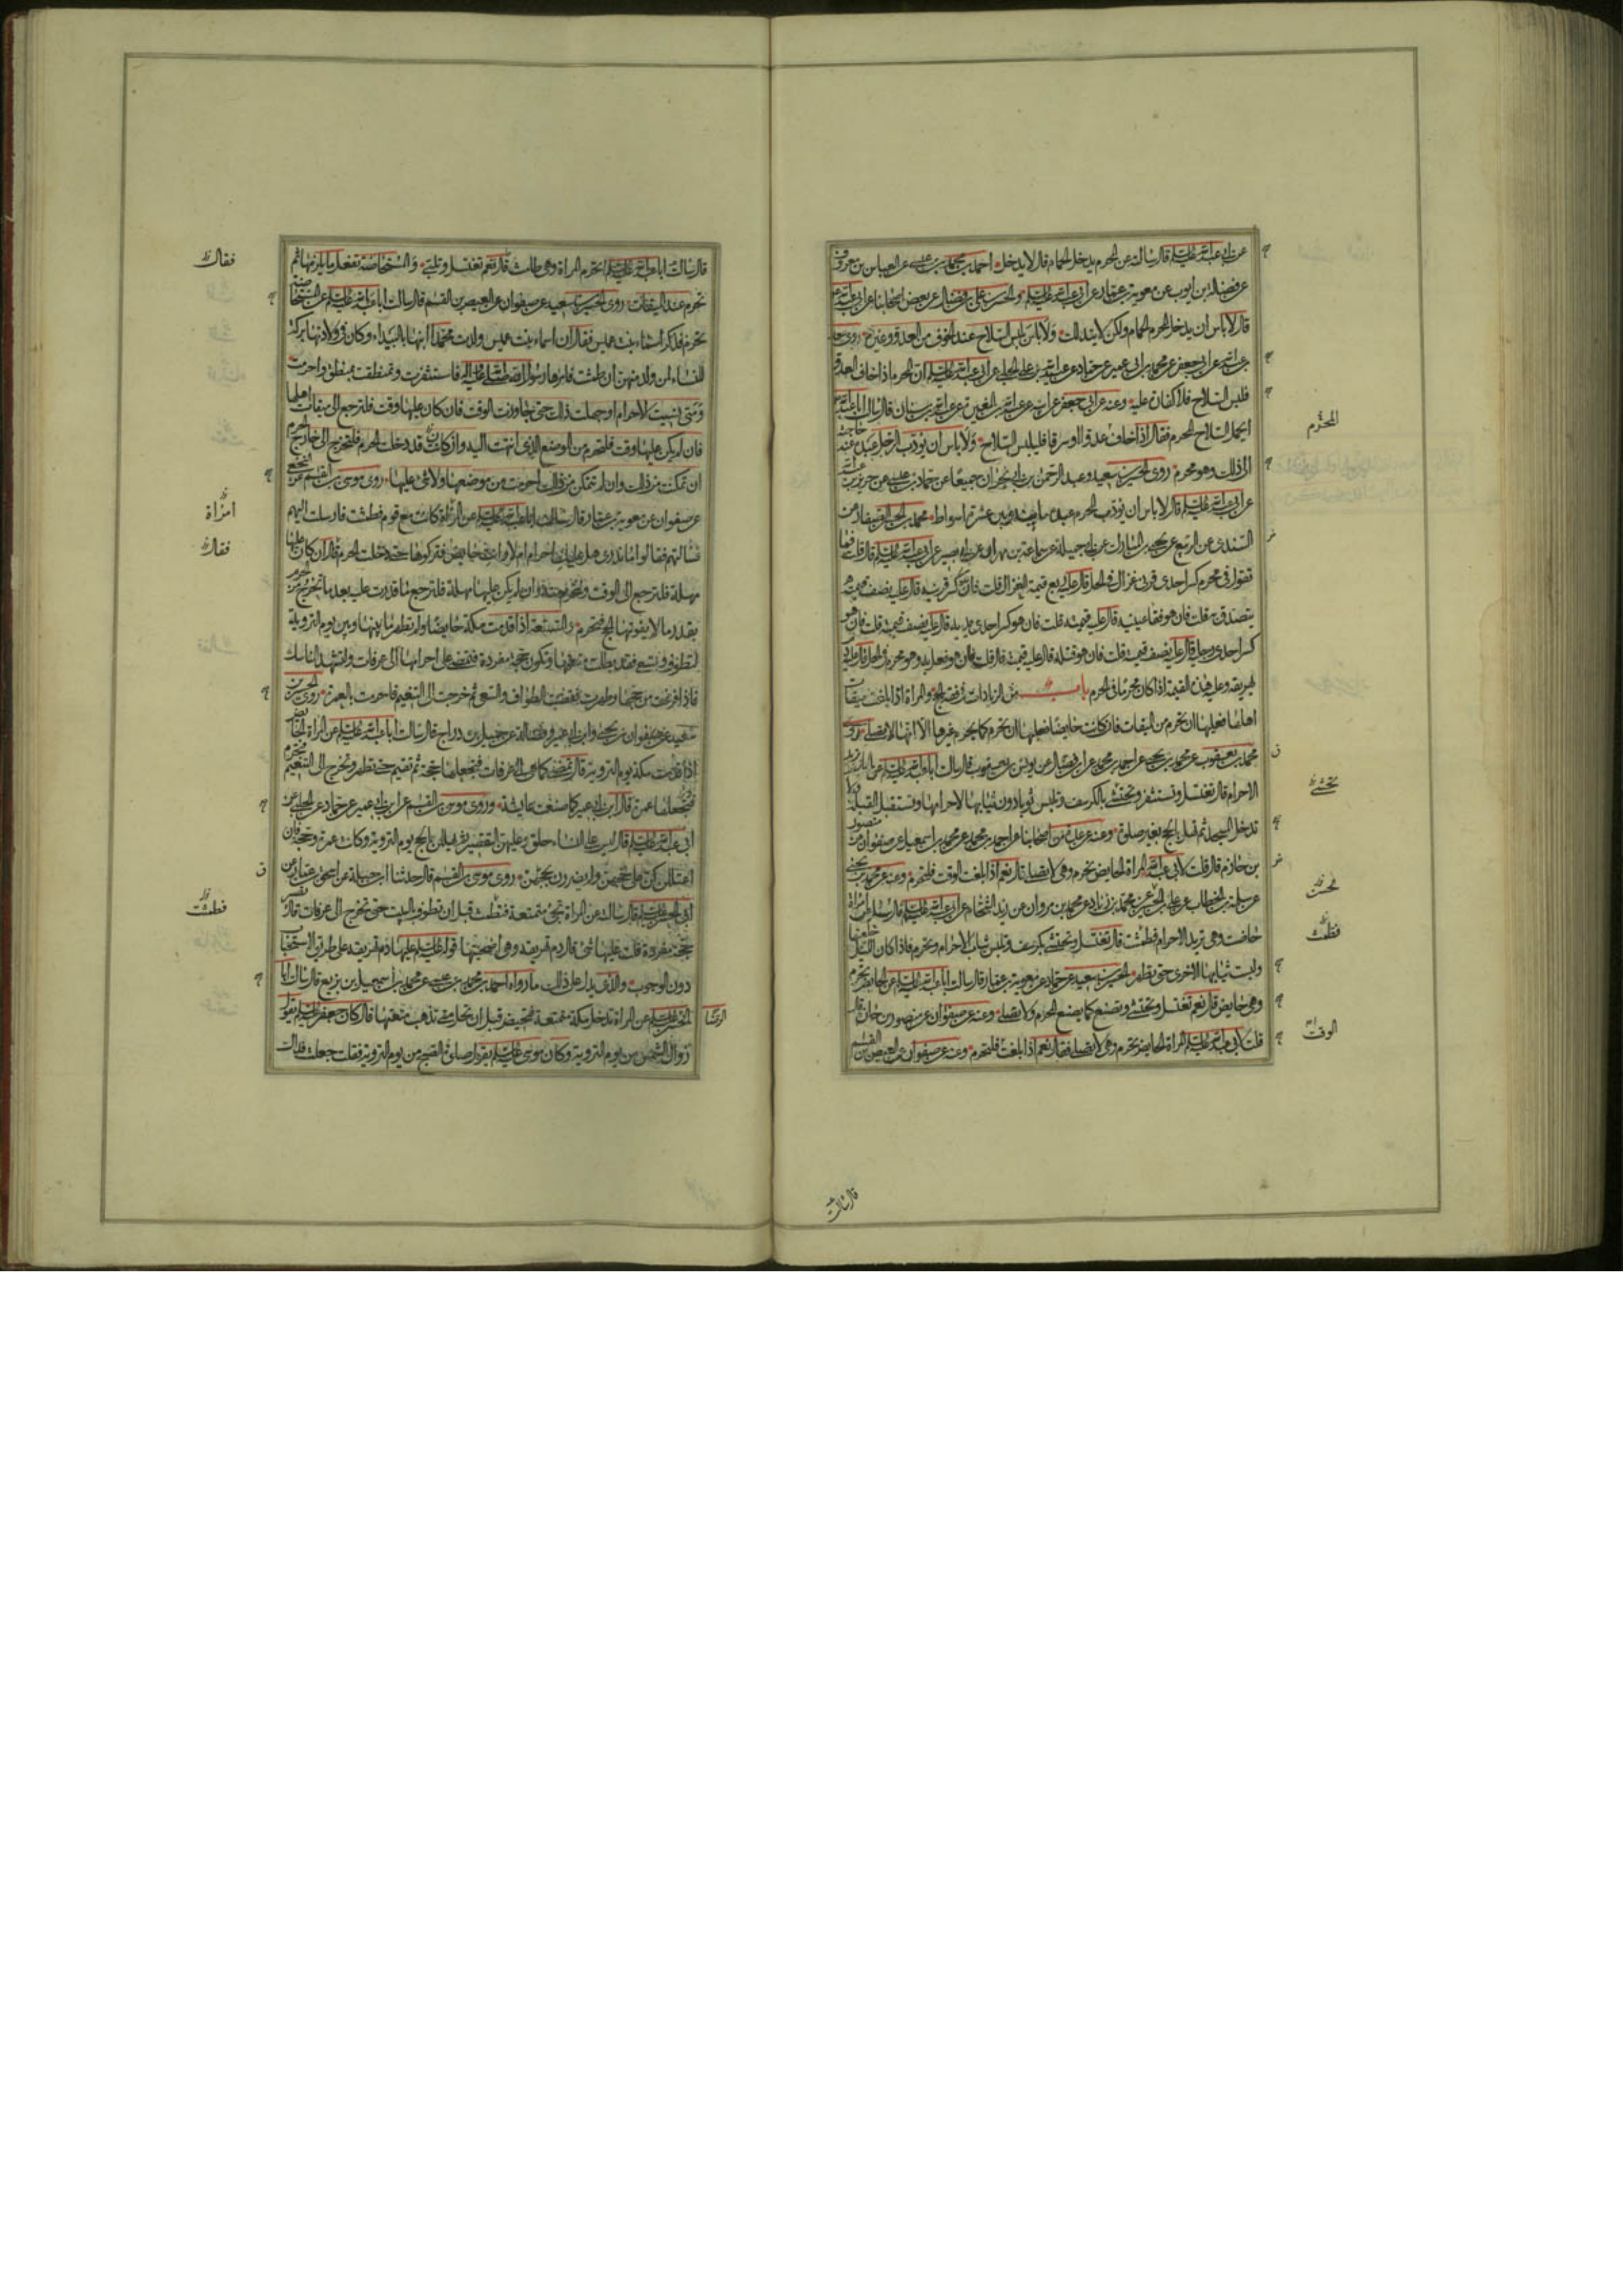 عن ابي عبد الله عليه السلم قال سالته عن المحرم يدخل الحمام قال لا يدخل احمد بن محمد بن عيسى عن العباس بن معروف
عن فضالة بن ايوب عن معوية بن عمار عن ابي عبد الله عليه السلم والحسن بن علي بن فضال عن بعض اصحابنا عن ابي عبد الله
قال لا باس ان يدخل المحرم الحمام ولكن لا يتدلك ولا باس بلبس السلاح عند الخوف من العدو وغيره روى سعد
بن عبد الله عن ابي جعفر عن محمد بن ابي عمير عن حماد عن عبد الله بن علي الحلبي عن ابي عبد الله عليه السلم ان المحرم اذا خاف العدو
فلبس السلاح فلا كفارة عليه وعنه عن ابي جعفر عن ابيه عن عبد الله بن المغيرة عن عبد الله بن سنان قال سالت ابا عبد الله
ايحمل السلاح المحرم فقال اذا خاف عدوا او سرقا فليلبس السلاح ولا باس ان يؤدب الرجل عبده عند حاجته
الى ذلك وهو محرم روى الحسين بن سعيد وعبد الرحمن بن ابي نجران جميعا عن حماد بن عيسى عن حريز بن عبد الله
عن ابي عبد الله عليه السلم قال لا باس ان يؤدب المحرم عبده ما بينه وبين عشرة اسواط محمد بن
السندي عن الربيع عن يحيى بن المبارك عن ابي جميلة عن سماعة بن مهران عن ابي بصير عن ابي عبد الله عليه السلم قال قلت فما
تقول في محرم كسر احدى قرني غزال في الحل قال عليه ربع قيمة الغزال قلت فان كسر قرنيه قال عليه نصف قيمته
يتصدق به قلت فان هو فقا عينيه قال عليه قيمته قلت فان هو كسر احدى يديه قال عليه نصف قيمته قلت فان هو
كسر احدى رجليه قال عليه نصف قيمته قلت فان هو قتله قال عليه قيمته قال قلت فان هو فعل به وهو محرم في الحل قال عليه دم
يهريقه وعليه هذه القيمة اذا كان محرما في الحرم باب من الزيادات في فقه الحج والمراة اذا بلغت ميقات
اهلها فعليها ان تحرم من الميقات فان كانت حايضا فعليها ان تحرم كما يحرم غيرها الا انها لا تصلي روى
محمد بن يعقوب عن محمد بن يحيى عن احمد بن محمد عن ابن فضال عن يونس بن يعقوب قال سالت ابا عبد الله عليه السلم عن الحايض تريد
الاحرام قال تغتسل وتستثفر وتحتشي بالكرسف وتلبس ثوبا دون ثيابها لاحرامها وتستقبل القبلة ولا
تدخل المسجد ثم تهل بالحج بغير صلوة وعنه عن عدة من اصحابنا عن احمد بن محمد عن محمد بن اسمعيل عن صفوان عن منصور
بن حازم قال قلت لابي عبد الله المراة الحايض تحرم وهي لا تصلي قال نعم اذا بلغت الوقت فلتحرم وعنه عن محمد بن يحيى
عن سلمة بن الخطاب عن علي بن الحسن عن محمد بن زياد عن محمد بن مروان عن زيد الشحام عن ابي عبد الله عليه السلم قال سئل عن امراة
حاضت وهي تريد الاحرام فطمثت قال تغتسل وتحتشي بكرسف وتلبس ثياب الاحرام وتحرم فاذا كان الليل خلعتها
ولبست ثيابها الاخرى حتى تطهر الحسين بن سعيد عن حماد عن معوية بن عمار قال سالت ابا عبد الله عليه السلم عن الحايض تحرم
وهي حايض قال نعم تغتسل وتحتشي وتصنع كما يصنع المحرم ولا تصلي وعنه عن صفوان عن منصور بن حازم قال
قلت لابي عبد الله عليه السلم المراة الحايض تحرم وهي لا تصلي فقال نعم اذا بلغت فلتحرم وعنه عن صفوان عن العيص بن القسم
المحرم
تحتشي
فطمثت
الوقت
قال سالت
قال سالت ابا عبد الله عليه السلم اتحرم المراة وهي طامث قال نعم تغتسل وتلبي والمستحاضة تفعل ما يلزمها ثم
تحرم عند الميقات روى الحسين بن سعيد عن صفوان عن العيص بن القسم قال سالت ابا عبد الله عليه السلم عن المستحاضة
تحرم فذكر اسماء بنت عميس فقال ان اسماء بنت عميس ولدت محمدا ابنها بالبيداء وكان في ولادتها بركة
للنساء لمن ولد منهن ان طمثت فامرها رسول الله صلى الله عليه واله فاستثفرت وتمنطقت بمنطق واحرمت
ومتى نسيت الاحرام او جهلت ذلك حتى تجاوزت الوقت فان كان عليها وقت فلترجع الى ميقات اهلها
فان لم يكن عليها وقت فلتحرم من الموضع الذي انتهت اليه وان كانت قد دخلت الحرم فلتخرج الى خارج الحرم
ان تمكنت من ذلك وان لم تتمكن من ذلك احرمت من موضعها ولا شئ عليها روى موسى بن القسم عن النخعي
عن صفوان عن معوية بن عمار قال سالت ابا عبد الله عليه السلم عن امراة كانت مع قوم فطمثت فارسلت اليهم
فسالتهم فقالوا ما ندري هل عليك احرام ام لا وانت حايض فتركوها حتى دخلت الحرم قال ان كان عليها
مهلة فلترجع الى الوقت ولتحرم منه وان لم يكن عليها مهلة فلترجع ما قدرت عليه بعد ما تخرج من الحرم
بقدر ما لا يفوتها الحج فتحرم والمتمتعة اذا قدمت مكة حايضا ولم تطهر ما بينها وبين يوم التروية
لتطوف وتسعى فقد بطلت متعتها وتكون حجة مفردة فتمضي على احرامها الى عرفات ولتشهد المناسك
فاذا فرغت من حجها وطهرت فقضت الطواف والسعي ثم خرجت الى التنعيم فاحرمت بالعمرة روى الحسين بن
سعيد عن صفوان بن يحيى وابن ابي عمير وفضالة عن جميل بن دراج قال سالت ابا عبد الله عليه السلم عن المراة الحايض
اذا قدمت مكة يوم التروية قال تمضي كما هي الى عرفات فتجعلها حجة ثم تقيم حتى تطهر وتخرج الى التنعيم فتحرم
فتجعلها عمرة قال ابن ابي عمير كما صنعت عايشة وروى موسى بن القسم عن ابن ابي عمير عن حماد عن الحلبي عن
ابي عبد الله عليه السلم قال ليس على النساء حلق وعليهن التقصير ثم يهللن بالحج يوم التروية وكانت عمرة وحجة فان
اعتللن كن على حجهن ولم يفردن حجهن روى موسى بن القسم قال حدثنا ابن جبلة عن اسحق بن عمار عن
ابي الحسن عليه السلم قال سالته عن المراة تجئ متمتعة فتطمث قبل ان تطوف بالبيت حتى تخرج الى عرفات قال تصير
حجة مفردة قلت عليها شئ قال دم تهريقه وهي اضحيتها قوله عليه السلم عليها دم تهريقه على طريق الاستحباب
دون الوجوب والذي يدل على ذلك ما رواه احمد بن محمد بن عيسى عن محمد بن اسمعيل بن بزيع قال سالت ابا
الحسن عليه السلم عن المراة تدخل مكة متمتعة فتحيض قبل ان تحل متى تذهب متعتها قال كان جعفر عليه السلم يقول
زوال الشمس من يوم التروية وكان موسى عليه السلم يقول صلوة الصبح من يوم التروية فقلت جعلت فداك
فقال
امراة
فقال
فطمثت
الرضا